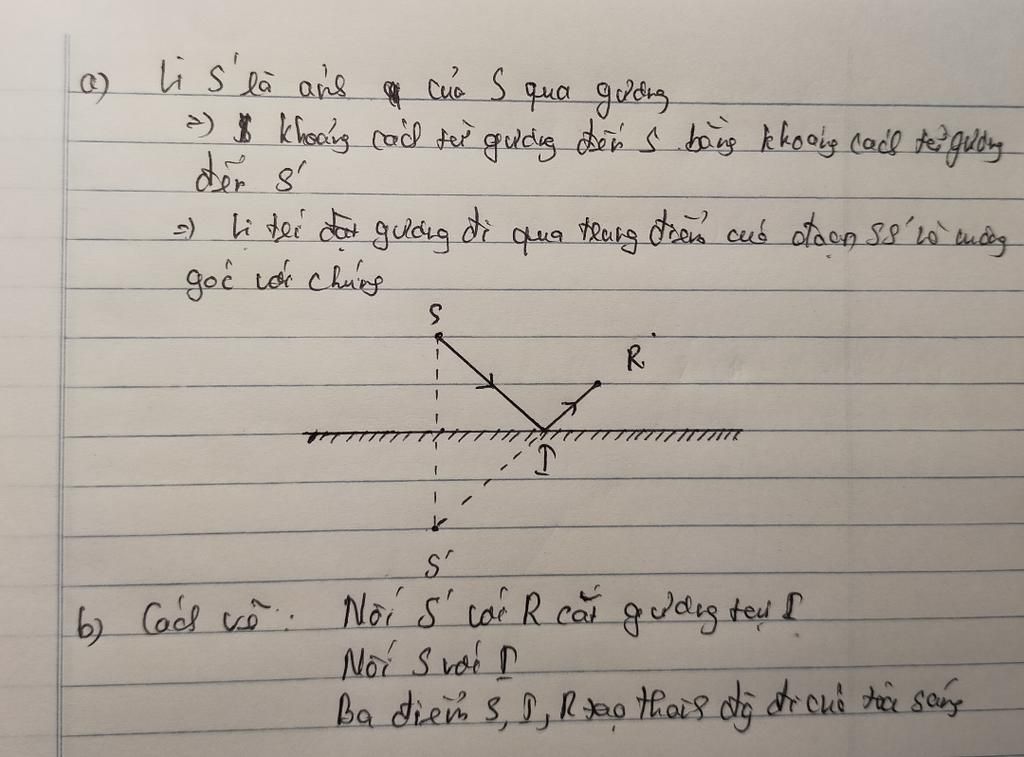 a) Vì S' là ảnh của S qua gương
=> khoảng cách từ gương đến S bằng khoảng cách từ gương
đến S'
=> Vị trí đặt gương đi qua trung điểm của đoạn SS' và vuông
góc với chúng
S
R
I
S'
b) Cách vẽ: Nối S' với R cắt gương tại I
Nối S với I
Ba điểm S, I, R tạo thành đg đi của tia sáng